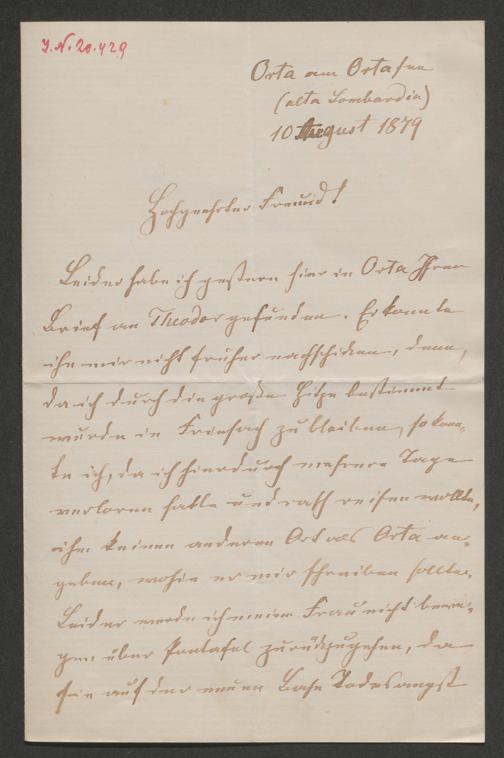 I.N. 20.429
Orta am Ortasee
(alta Lombardia)
10 August 1879
Hochgeehrter Freund!
Leider habe ich gestern hier in Orta Ihren
Brief an Theodor gefunden. Er konnte
ihn mir nicht früher nachschicken, denn,
da ich durch die große Hitze bestimmt
wurde in Friesach zu bleiben, so konn-
te ich, da ich hierdurch mehrere Tage
verloren hatte und rasch reisen wollte,
ihm keinen anderen Ort als Orta an-
geben, wohin er mir schreiben sollte.
Leider werde ich meine Frau nicht bewe-
gen über Pontafel zurückzugehen, da
sie auf der neuen Bahn Todesangst